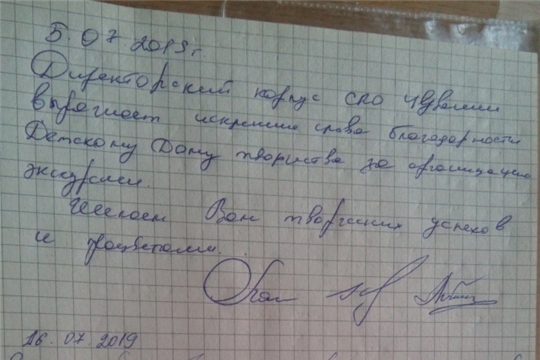 5.07.2019г.
Директорский корпус СПО Чувашии
выражает искренние слова благодарности
Детскому Дому творчества за организацию
экскурсии.
Желаем Вам творческих успехов
и процветания.
26.07.2019